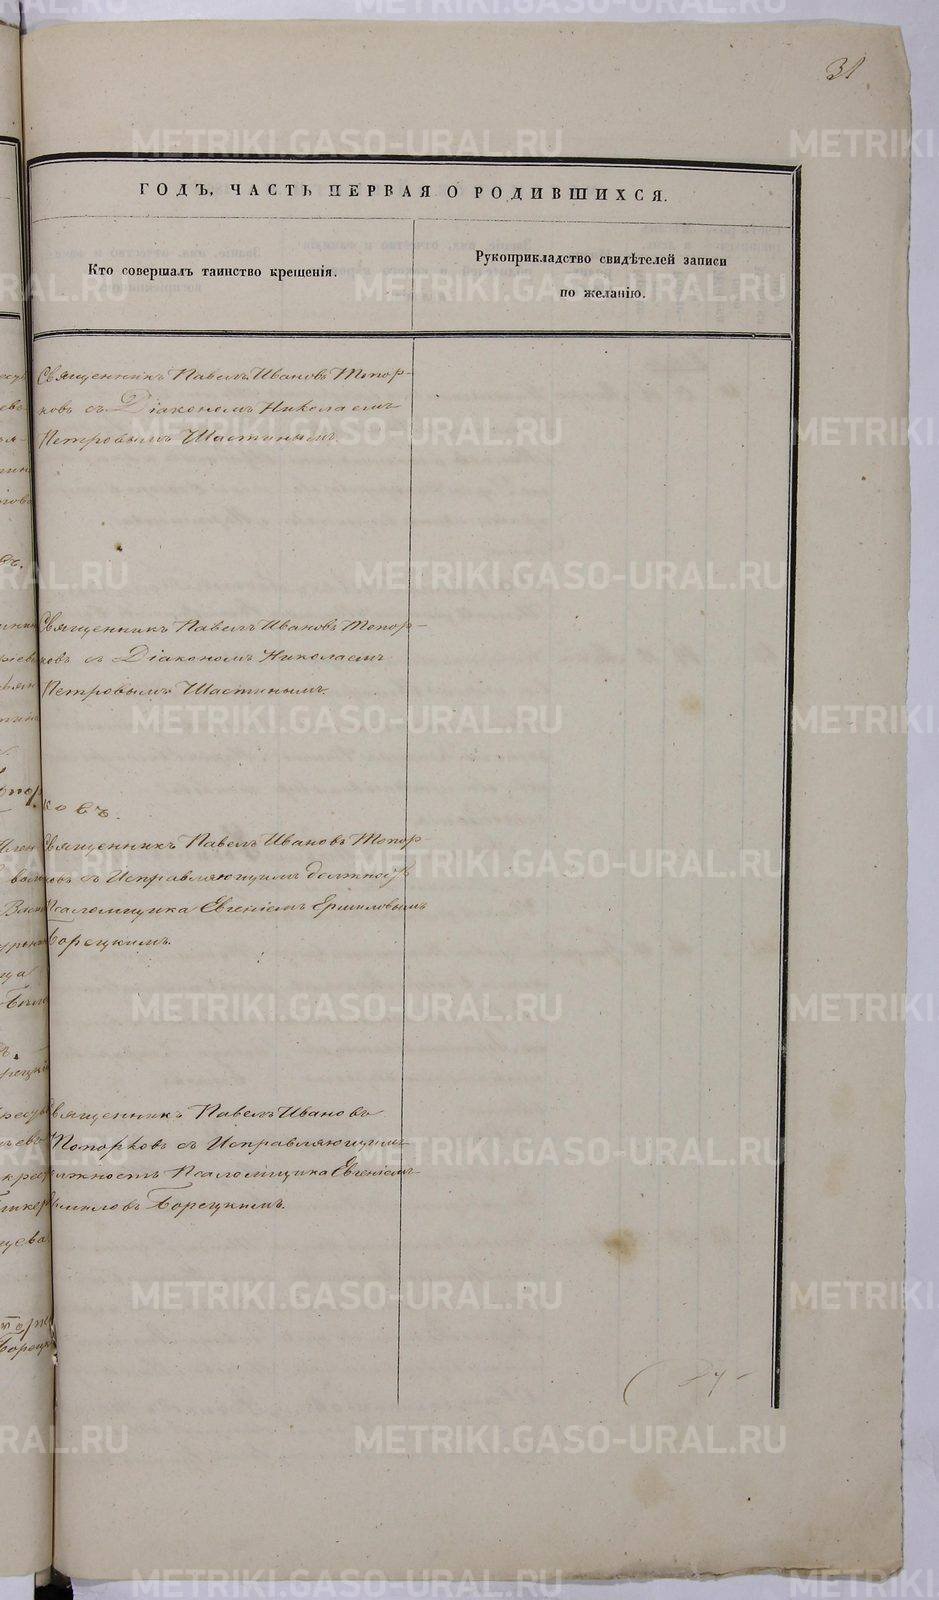 31
ГОДЪ, ЧАСТЬ ПЕРВАЯ О РОДИВШИХСЯ.
Кто совершалъ таинство крещенія.
Рукоприкладство свидѣтелей записи
по желанію.
Священникъ Павелъ Ивановъ Топор-
ковъ съ Діакономъ Николаемъ
Петровымъ Шастинымъ.
Священникъ Павелъ Ивановъ Топор-
ковъ съ Діакономъ Николаемъ
Петровымъ Шастинымъ.
ковъ.
Священникъ Павелъ Ивановъ Топор-
ковъ съ Исправляющимъ должность
Псаломщика Евгеніемъ Ермиловымъ
Борецкимъ.
Священникъ Павелъ Ивановъ
Топорковъ съ Исправляющимъ
должность Псаломщика Евгеніемъ
Ермиловъ Борецкимъ.
METRIKI.GASO-URAL.RU